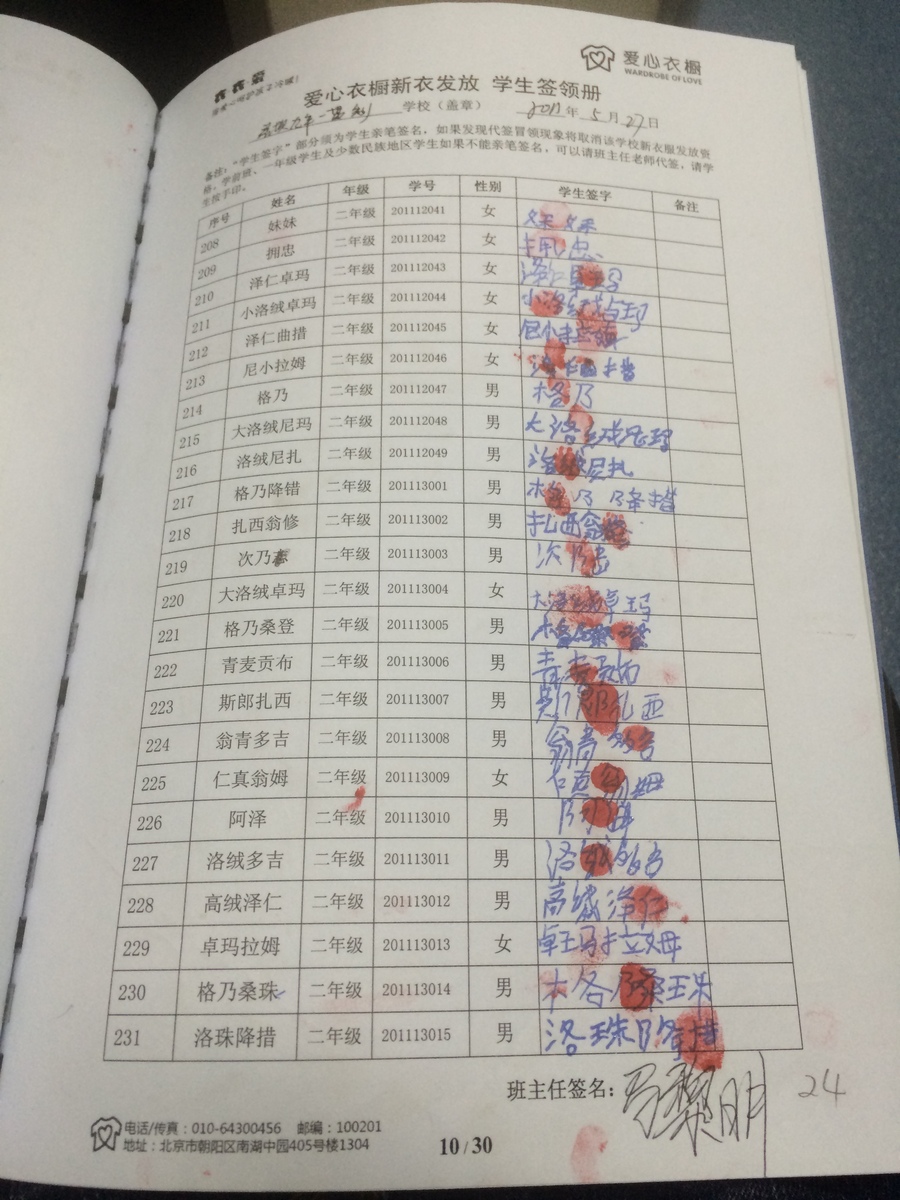 爱心衣橱
WARDROBE OF LOVE
爱心衣橱新衣发放 学生签领册
学校（盖章） 2011年5月27日
备注："学生签字"部分须为学生亲笔签名，如果发现代签冒领现象将取消该学校新衣服发放资
格，学前班、一年级学生及少数民族地区学生如果不能亲笔签名，可以请班主任老师代签，请学
生按手印。
序号 姓名 年级 学号 性别 学生签字 备注
208 妹妹 二年级 201112041 女 妹妹
209 拥忠 二年级 201112042 女 拥忠
210 泽仁卓玛 二年级 201112043 女 泽仁卓玛
211 小洛绒卓玛 二年级 201112044 女 小洛绒卓玛
212 泽仁曲措 二年级 201112045 女
213 尼小拉姆 二年级 201112046 女
214 格乃 二年级 201112047 男 格乃
215 大洛绒尼玛 二年级 201112048 男 大洛绒尼玛
216 洛绒尼扎 二年级 201112049 男 洛绒尼扎
217 格乃降错 二年级 201113001 男 格乃降措
218 扎西翁修 二年级 201113002 男 扎西翁修
219 次乃 二年级 201113003 男 次乃
220 大洛绒卓玛 二年级 201113004 女 大洛绒卓玛
221 格乃桑登 二年级 201113005 男
222 青麦贡布 二年级 201113006 男
223 斯郎扎西 二年级 201113007 男 斯郎扎西
224 翁青多吉 二年级 201113008 男 翁青多吉
225 仁真翁姆 二年级 201113009 女 仁真翁姆
226 阿泽 二年级 201113010 男 阿泽
227 洛绒多吉 二年级 201113011 男 洛绒多吉
228 高绒泽仁 二年级 201113012 男 高绒泽仁
229 卓玛拉姆 二年级 201113013 女 卓玛拉姆
230 格乃桑珠 二年级 201113014 男 格乃桑珠
231 洛珠降措 二年级 201113015 男 洛珠降措
班主任签名：马黎明 24
电话/传真：010-64300456 邮编：100201
地址：北京市朝阳区南湖中园405号楼1304
10/30